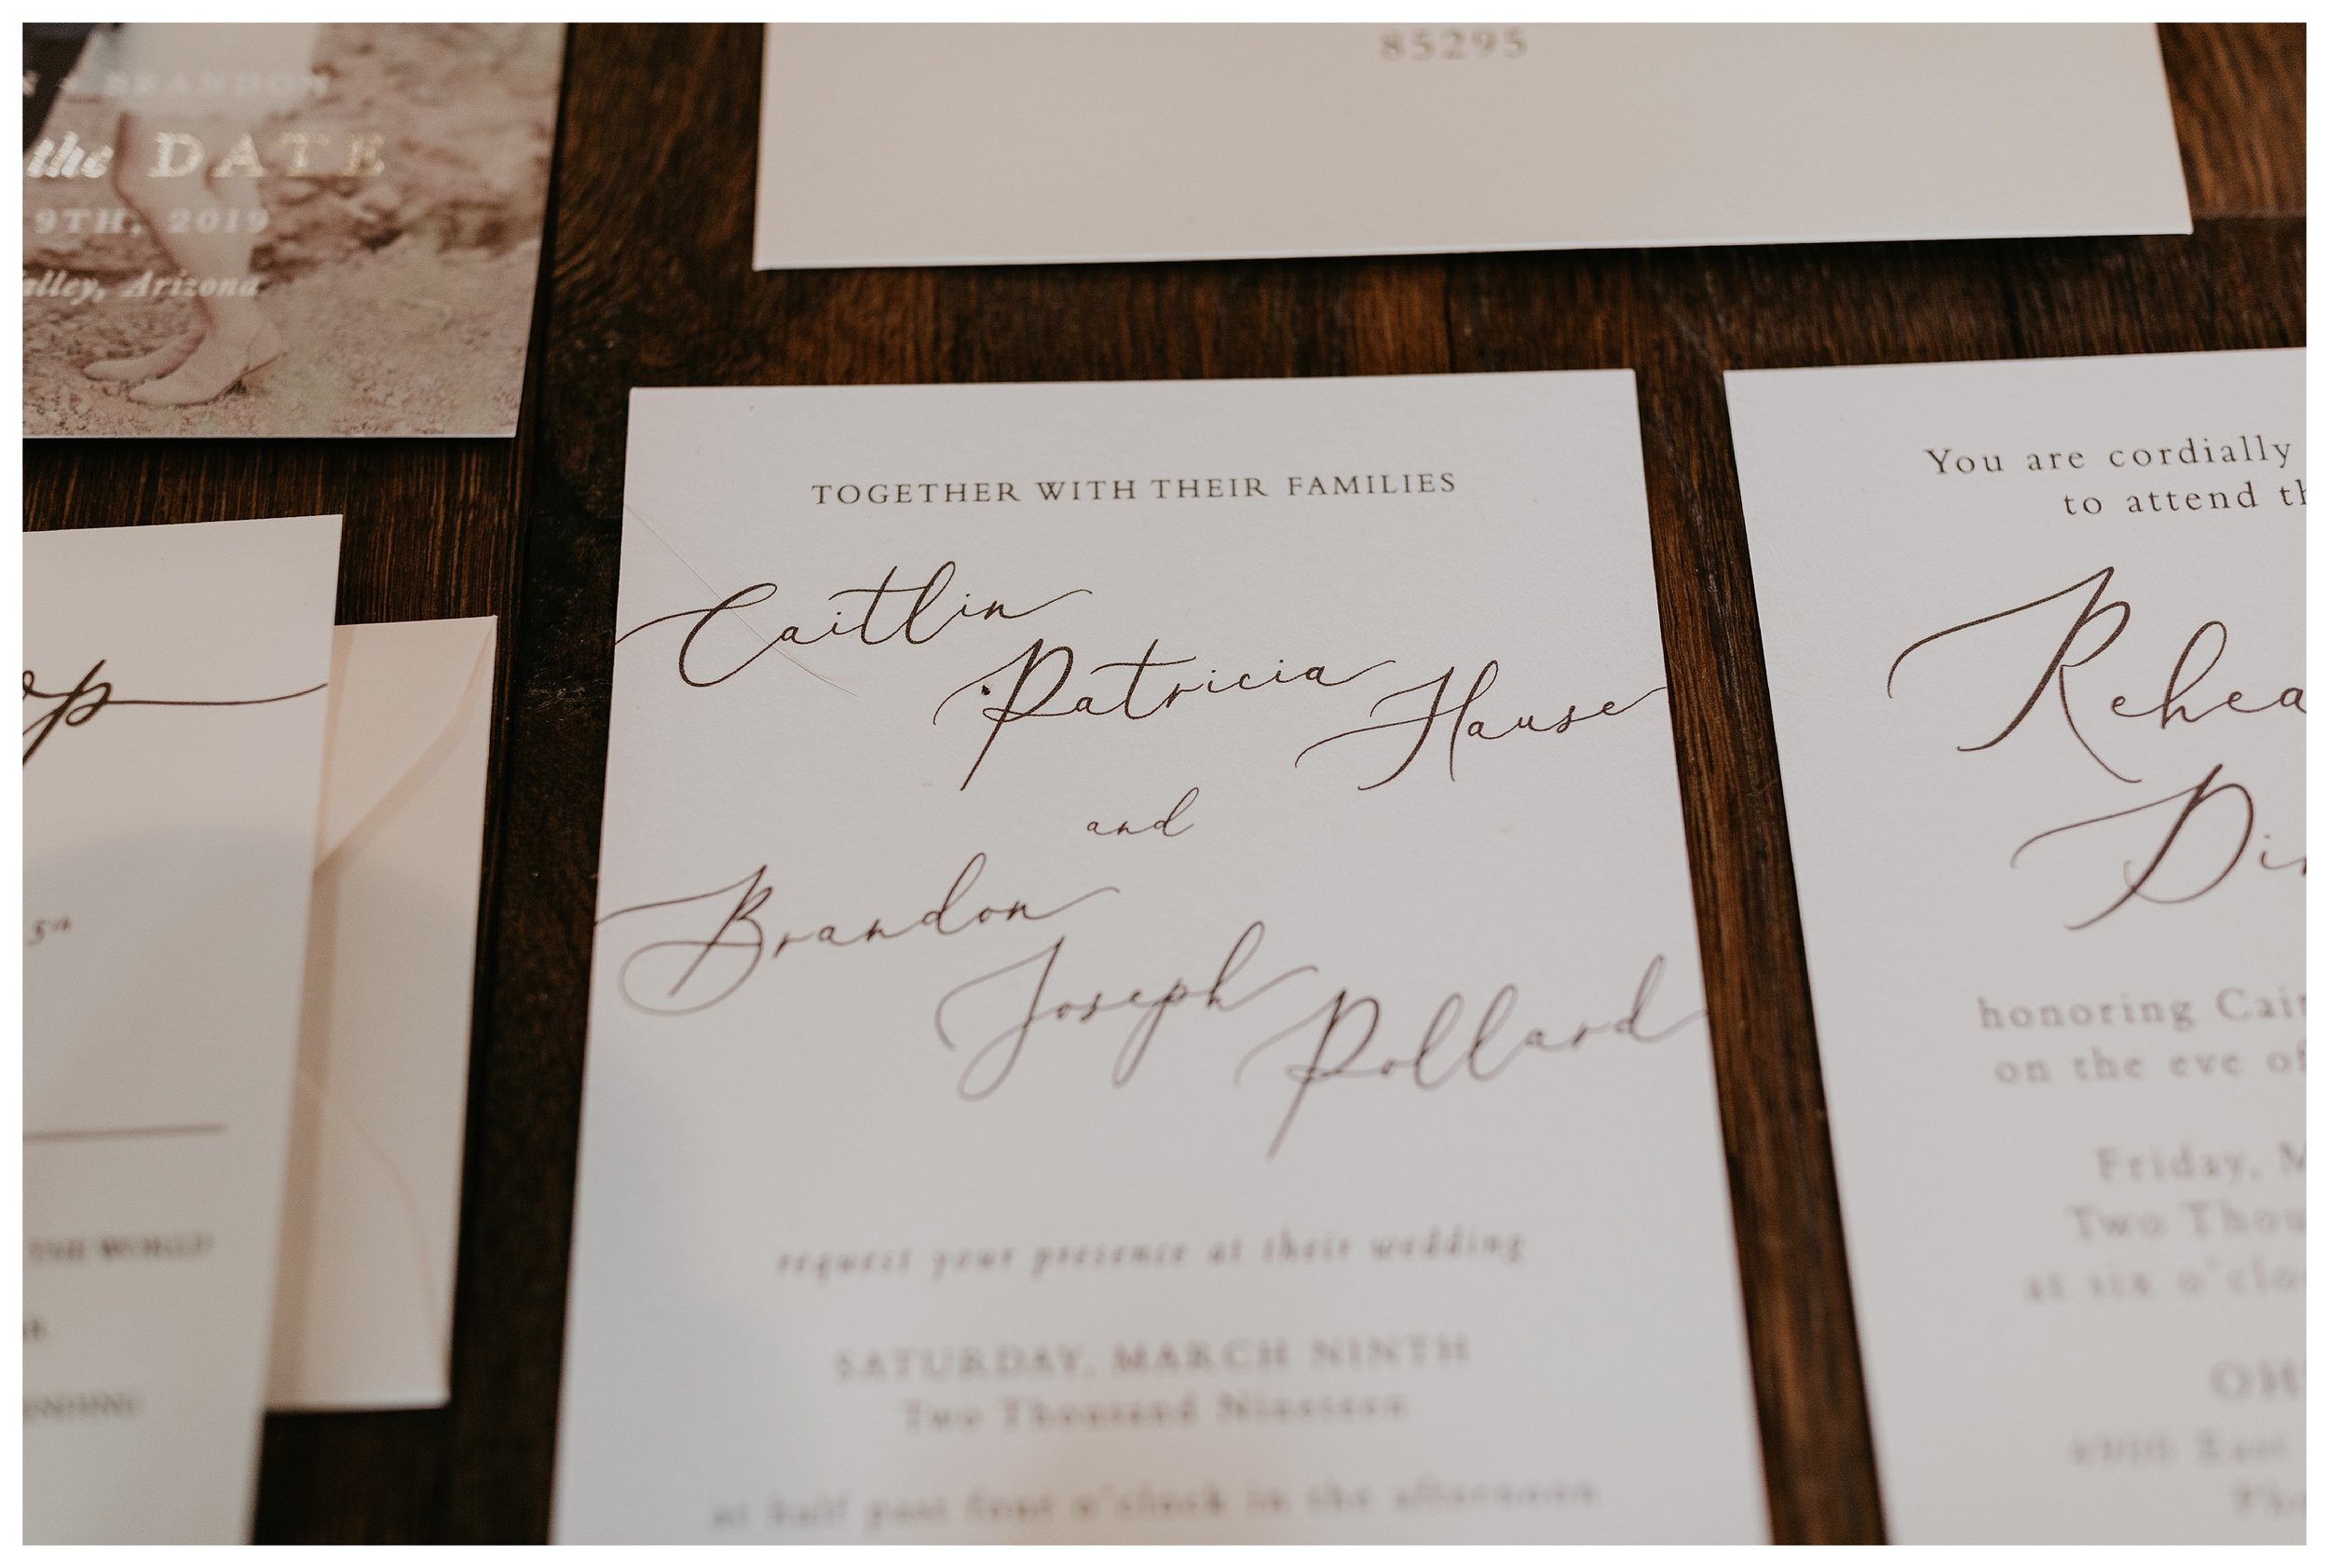 BRANDON
the DATE
9TH, 2019
Arizona
85295
5th
THE WORLD
TOGETHER WITH THEIR FAMILIES
Caitlin
Patricia
Hause
and
Brandon
Joseph
Pollard
request your presence at their wedding
SATURDAY, MARCH NINTH
Two Thousand Nineteen
at half past four o'clock in the afternoon
You are cordially
to attend
honoring
on the eve of
Friday,
Two
at six
East